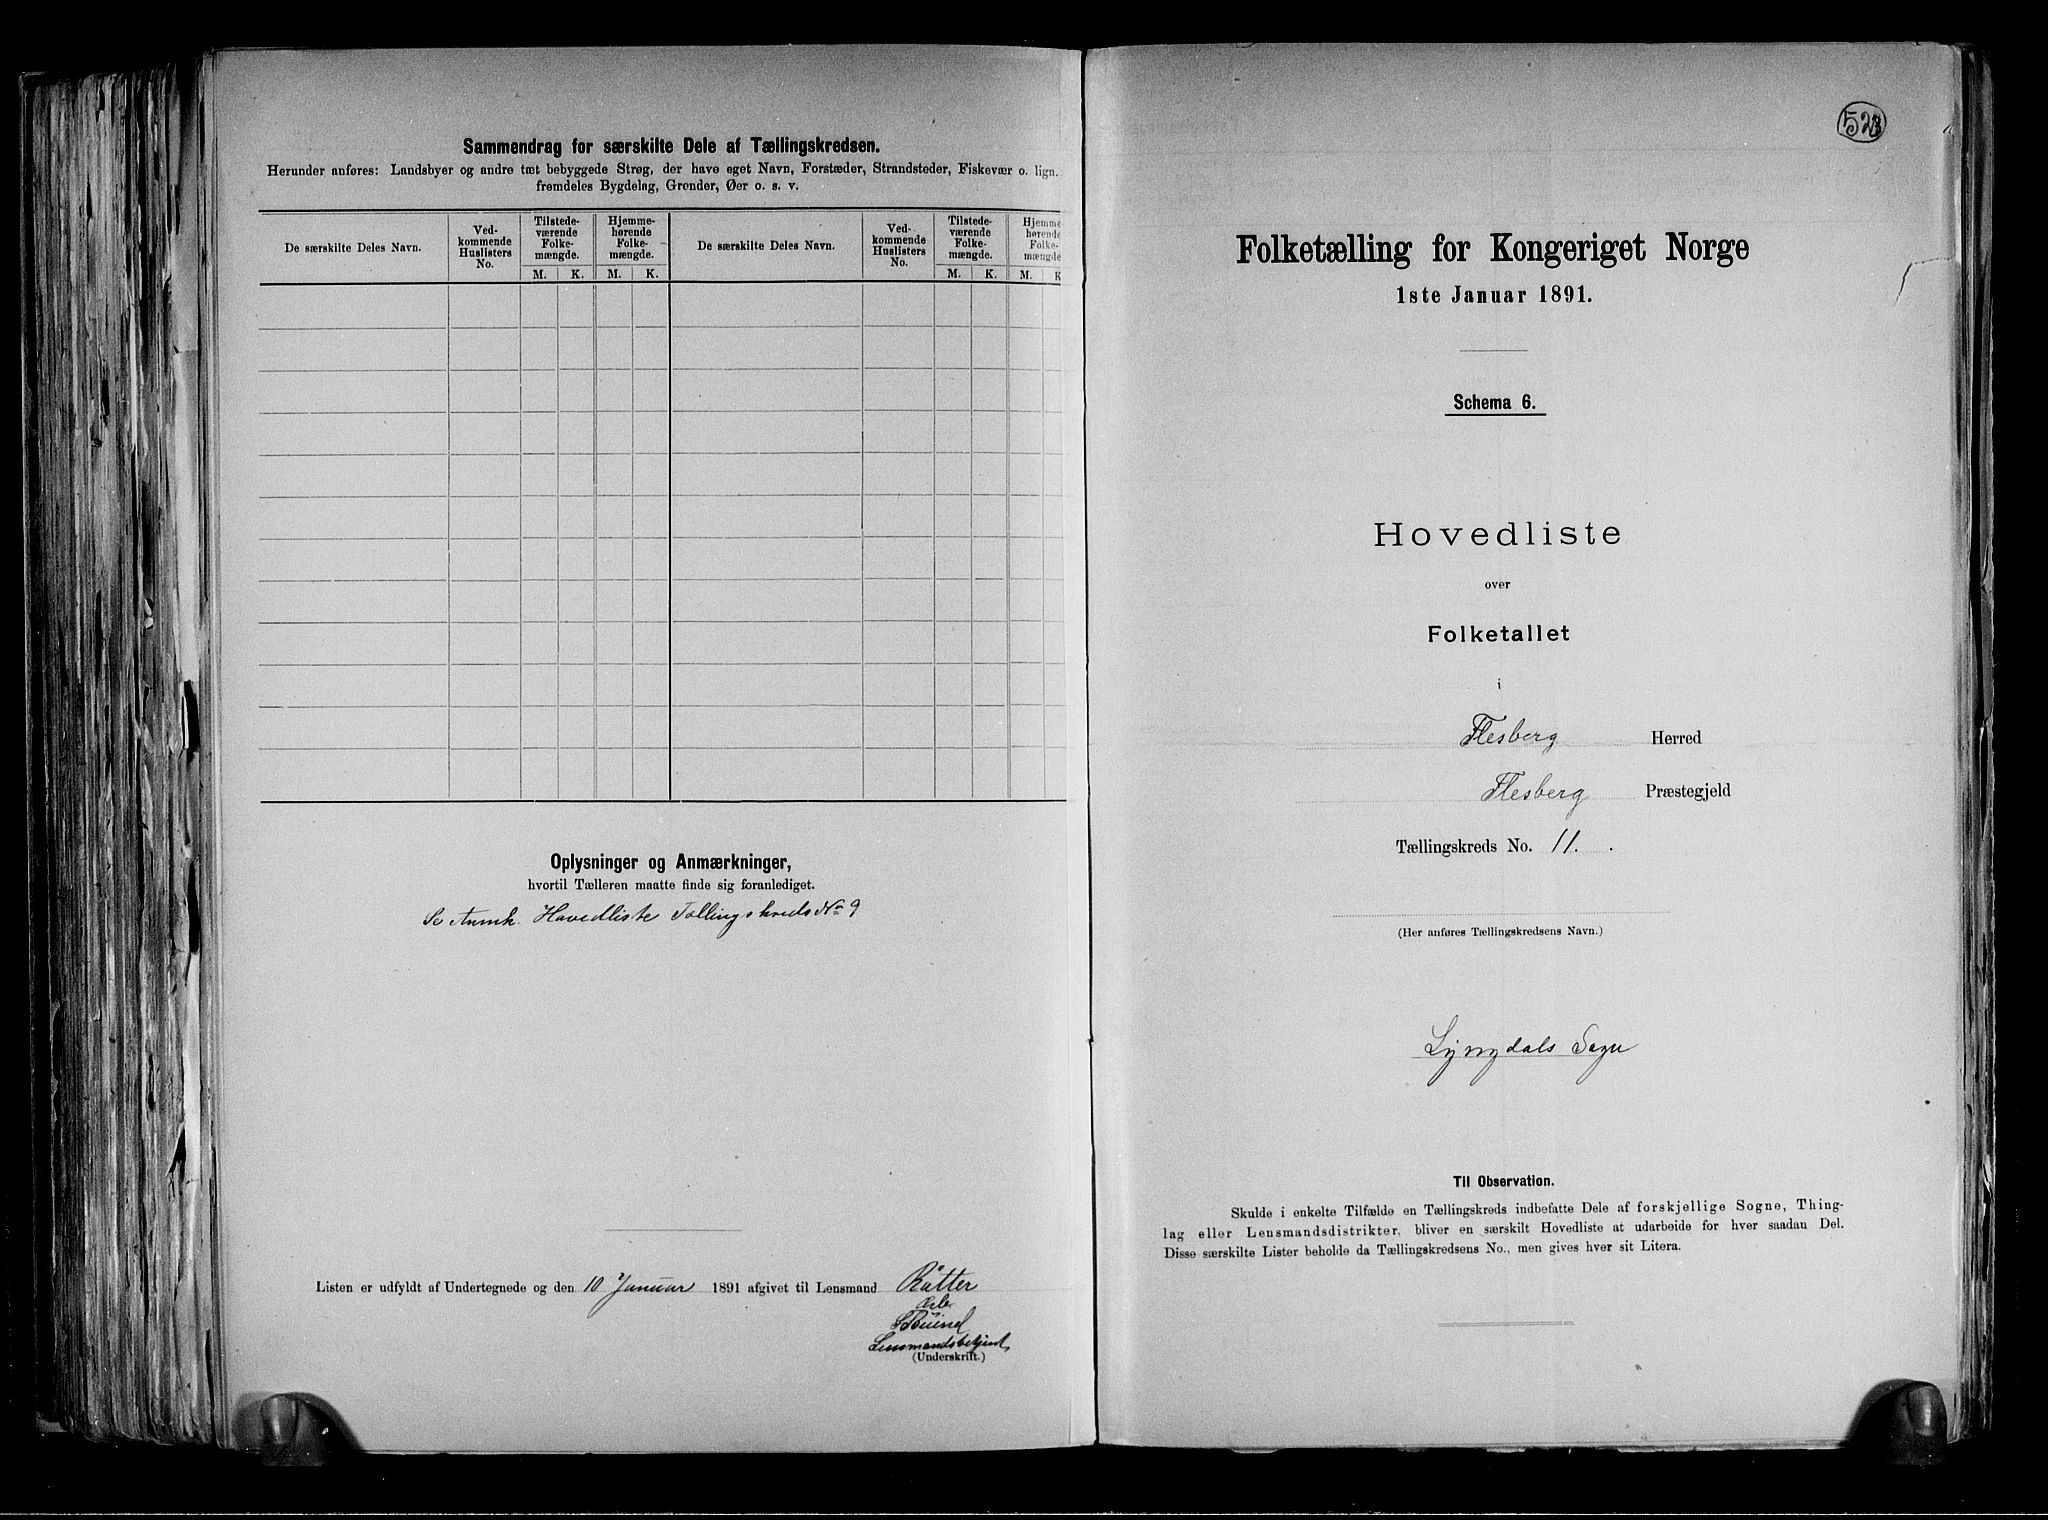 Sammendrag for særskilte Dele af Tællingskredsen.
Herunder anføres: Landsbyer og andre tæt bebyggede Strøg, der have eget Navn, Forstæder, Strandsteder, Fiskevær o. lign.
fremdeles Bygdelag, Grender, Øer o. s. v.
De særskilte Deles Navn.
Ved-
kommende
Huslisters
No.
Tilstede-
værende
Folke-
mængde.
M. K.
Hjemme-
hørende
Folke-
mængde.
M. K.
De særskilte Deles Navn.
Ved-
kommende
Huslisters
No.
Tilstede-
værende
Folke-
mængde.
M. K.
Hjemme
hørende
Folke-
mængde
M. K
Oplysninger og Anmærkninger,
hvortil Tælleren maatte finde sig foranlediget.
Se Anmk. Hovedliste Tællingskreds No 9
Listen er udfyldt af Undertegnede og den 10 Januar 1891 afgivet til Lensmand
(Underskrift.)
523
Folketælling for Kongeriget Norge
1ste Januar 1891.
Schema 6.
Hovedliste
over
Folketallet
i
Flesberg Herred
Flesberg Præstegjeld
Tællingskreds No. 11.
(Her anføres Tællingskredsens Navn.)
Lyngdals Sogn
Til Observation.
Skulde i enkelte Tilfælde en Tællingskreds indbefatte Dele af forskjellige Sogne, Thing-
lag eller Lensmandsdistrikter, bliver en særskilt Hovedliste at udarbeide for hver saadan Del.
Disse særskilte Lister beholde da Tællingskredsens No., men gives hver sit Litera.